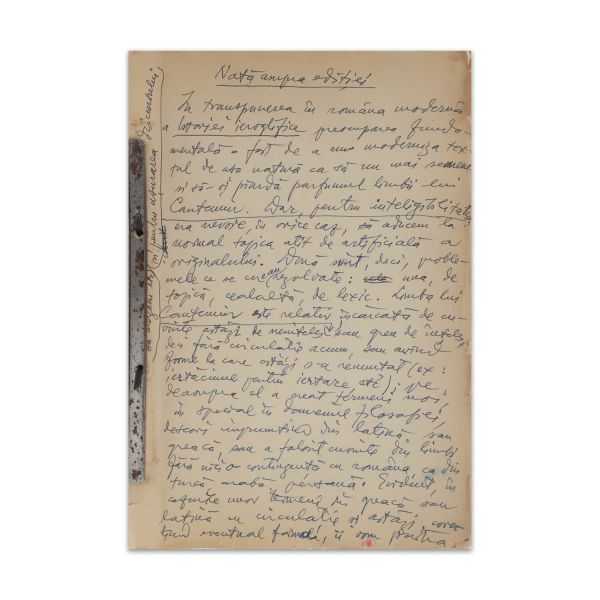 Notă asupra ediției
În transpunerea în româna modernă
a Istoriei ieroglifice preocuparea funda-
mentală a fost de a nu moderniza tex-
tul de așa natură ca să nu mai semene
și să-și piardă parfumul limbii lui
Cantemir. Dar, pentru inteligibilitate,
era nevoie, în orice caz, să aducem la
normal topica atît de artificială a
originalului. Două sunt, deci, proble-
mele ce se cereau rezolvate: una, de
topică, cealaltă, de lexic. Limba lui
Cantemir este relativ încărcată de cu-
vinte astăzi de neînțeles sau greu de înțeles,
fără circulație acum, sau avînd
forme la care astăzi s-a renunțat (ex:
iertăciune pentru iertare etc); pe
deasupra el a creat termeni noi,
în special în domeniul filosofiei,
deseori împrumutați din latină sau
greacă, sau a folosit cuvinte din limbi
fără nici o contingență cu româna, ca din
turcă arabă persană. Evident, în
unor termeni din greacă sau
latină cu circulație și astăzi,
eventual formal, îi vom păstra,
și pentru ușurarea discursului,